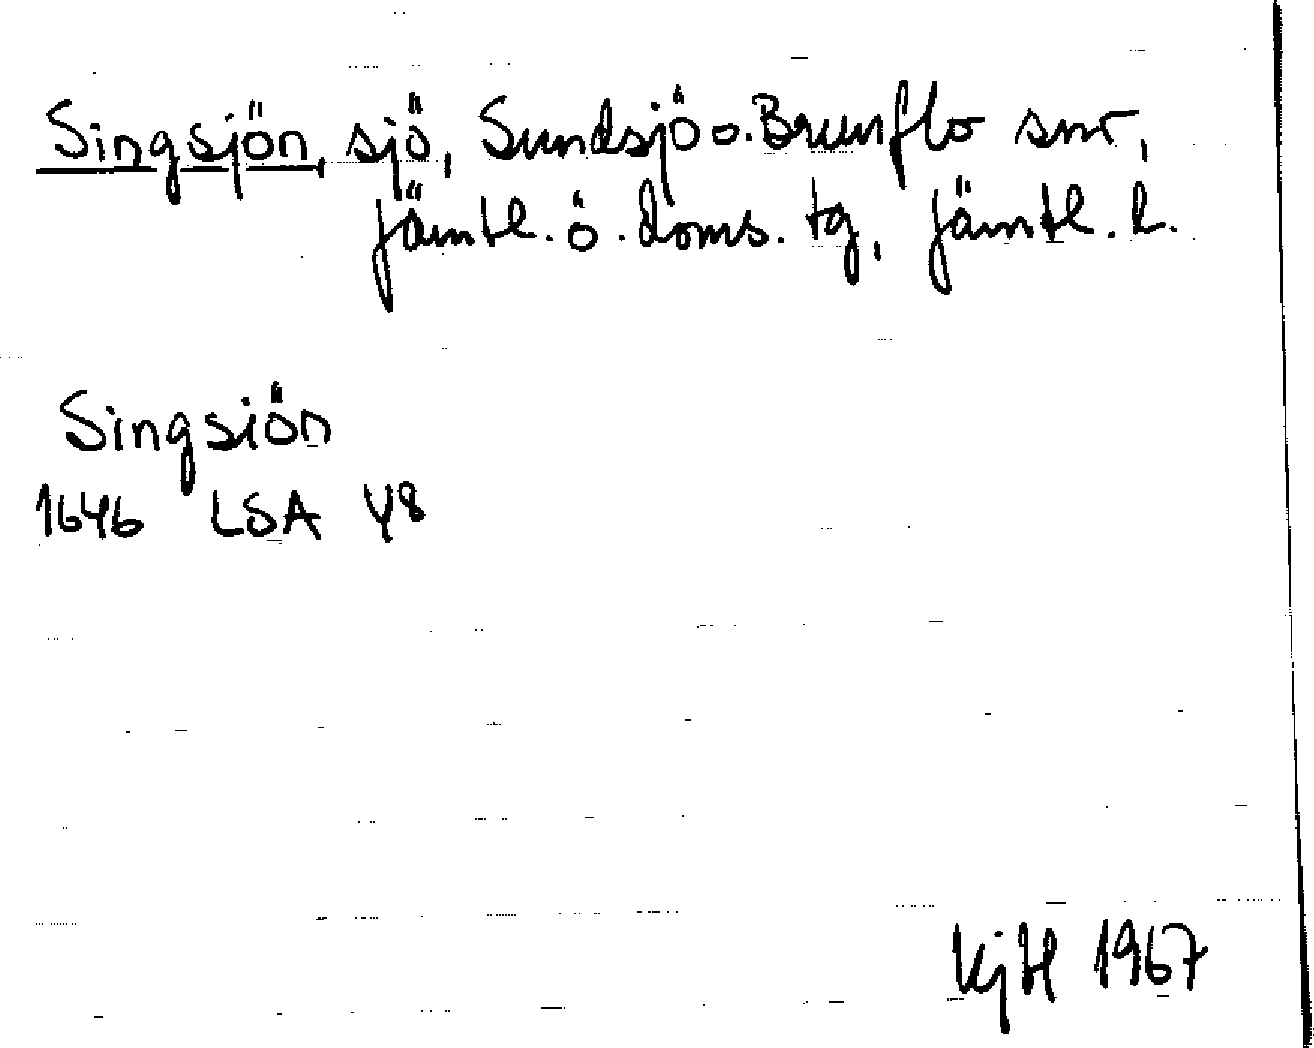 Singsjön, sjö, Sundsjö o. Brunflo snr,
Jämtl. ö. doms. tg, Jämtl. l.
Singsiön
1646 LSA 48
KjH 1967